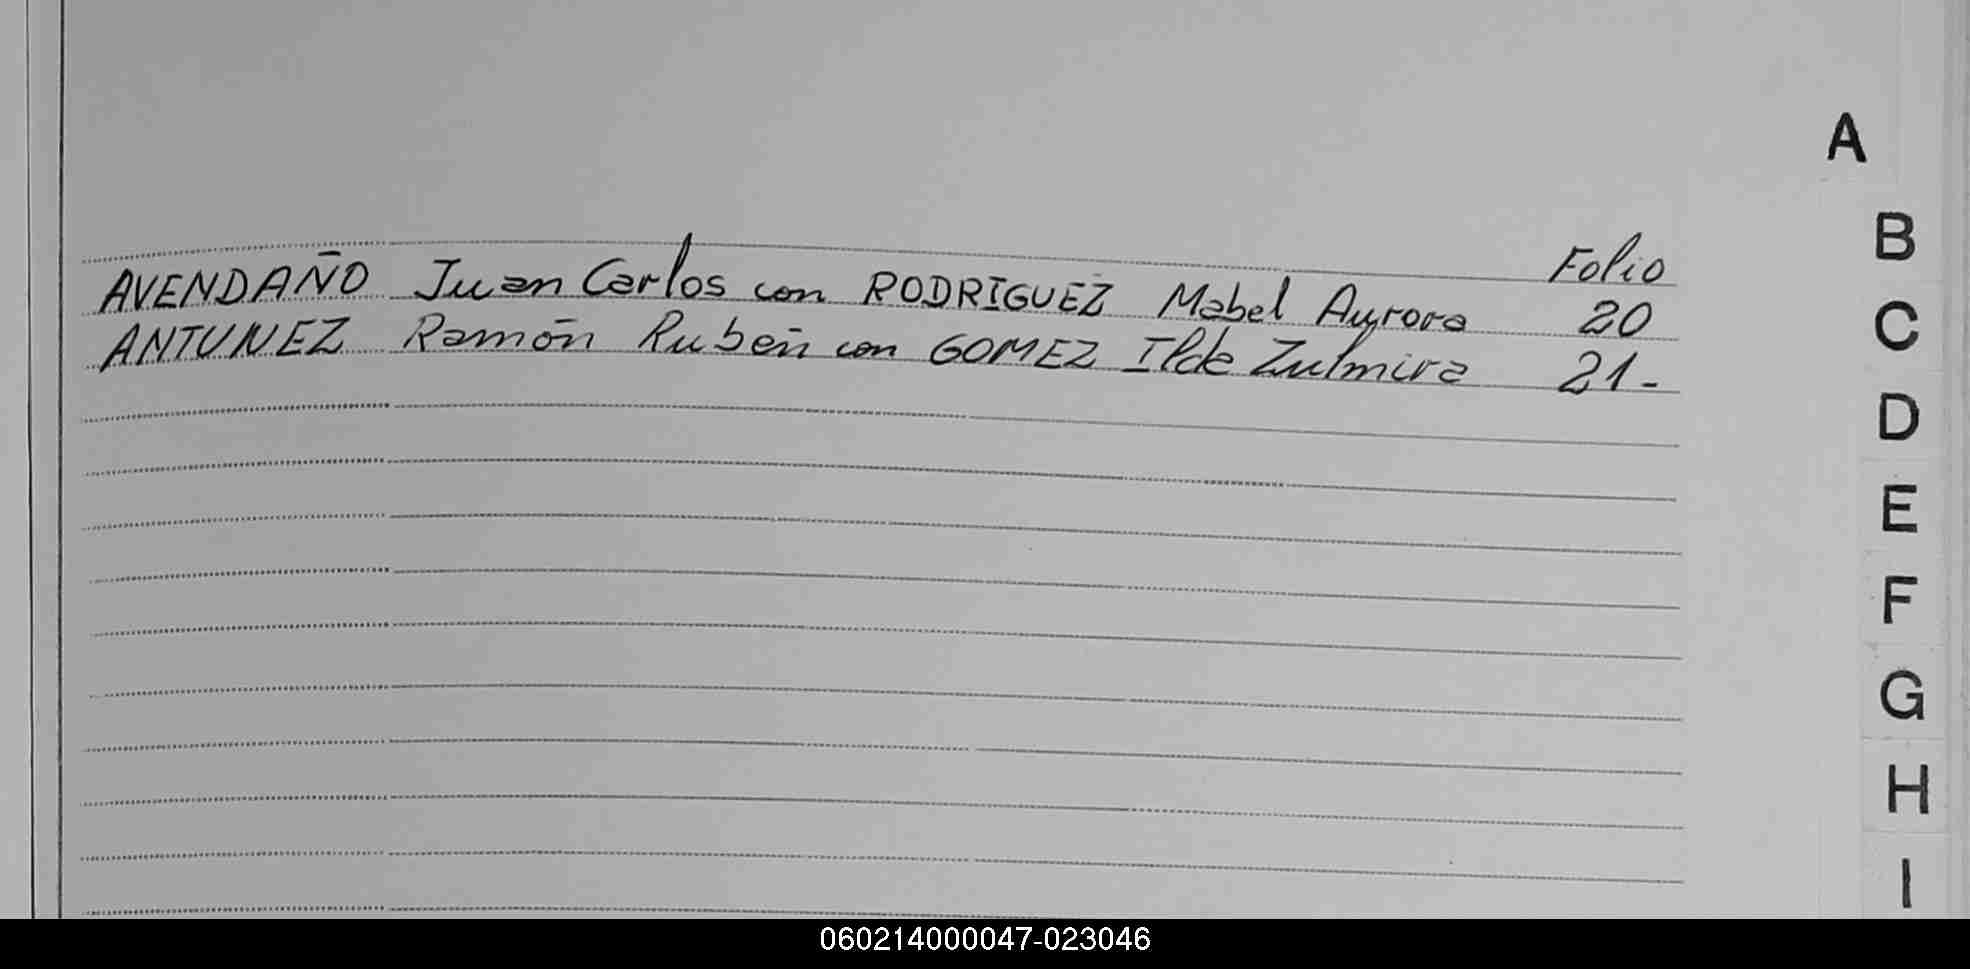 Folio
AVENDAÑO Juan Carlos con RODRIGUEZ Mabel Aurora 20
ANTUNEZ Ramón Rubén con GOMEZ Ilde Zulmira 21-
A
B
C
D
E
F
G
H
I
060214000047-023046